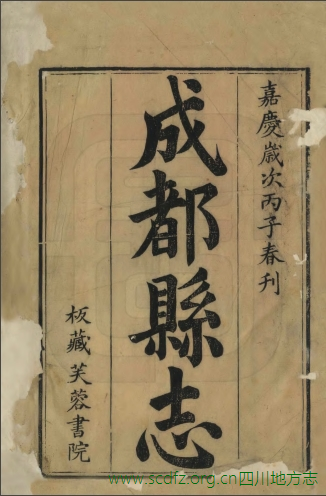 嘉慶歲次丙子春刊
成都縣志
板藏芙蓉書院
www.scdfz.org.cn四川地方志